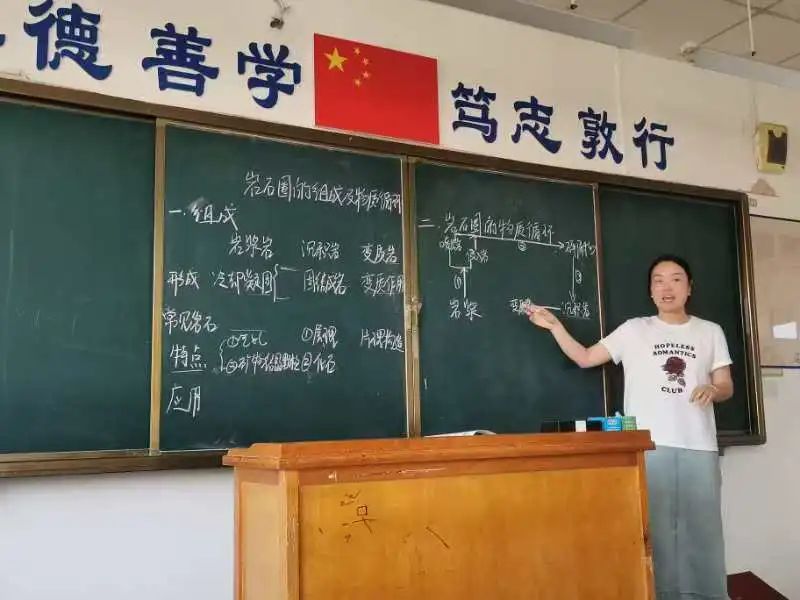 德善学 笃志敦行
岩石圈的组成及物质循环
一.组成
岩浆岩 沉积岩 变质岩
形成 冷却凝固 固结成岩 变质作用
常见岩石
特点 ①气孔 ①层理 片理构造
②化石
应用
二.岩石圈的物质循环
岩浆 变质岩 沉积岩
HOPELESS
ROMANTICS
CLUB